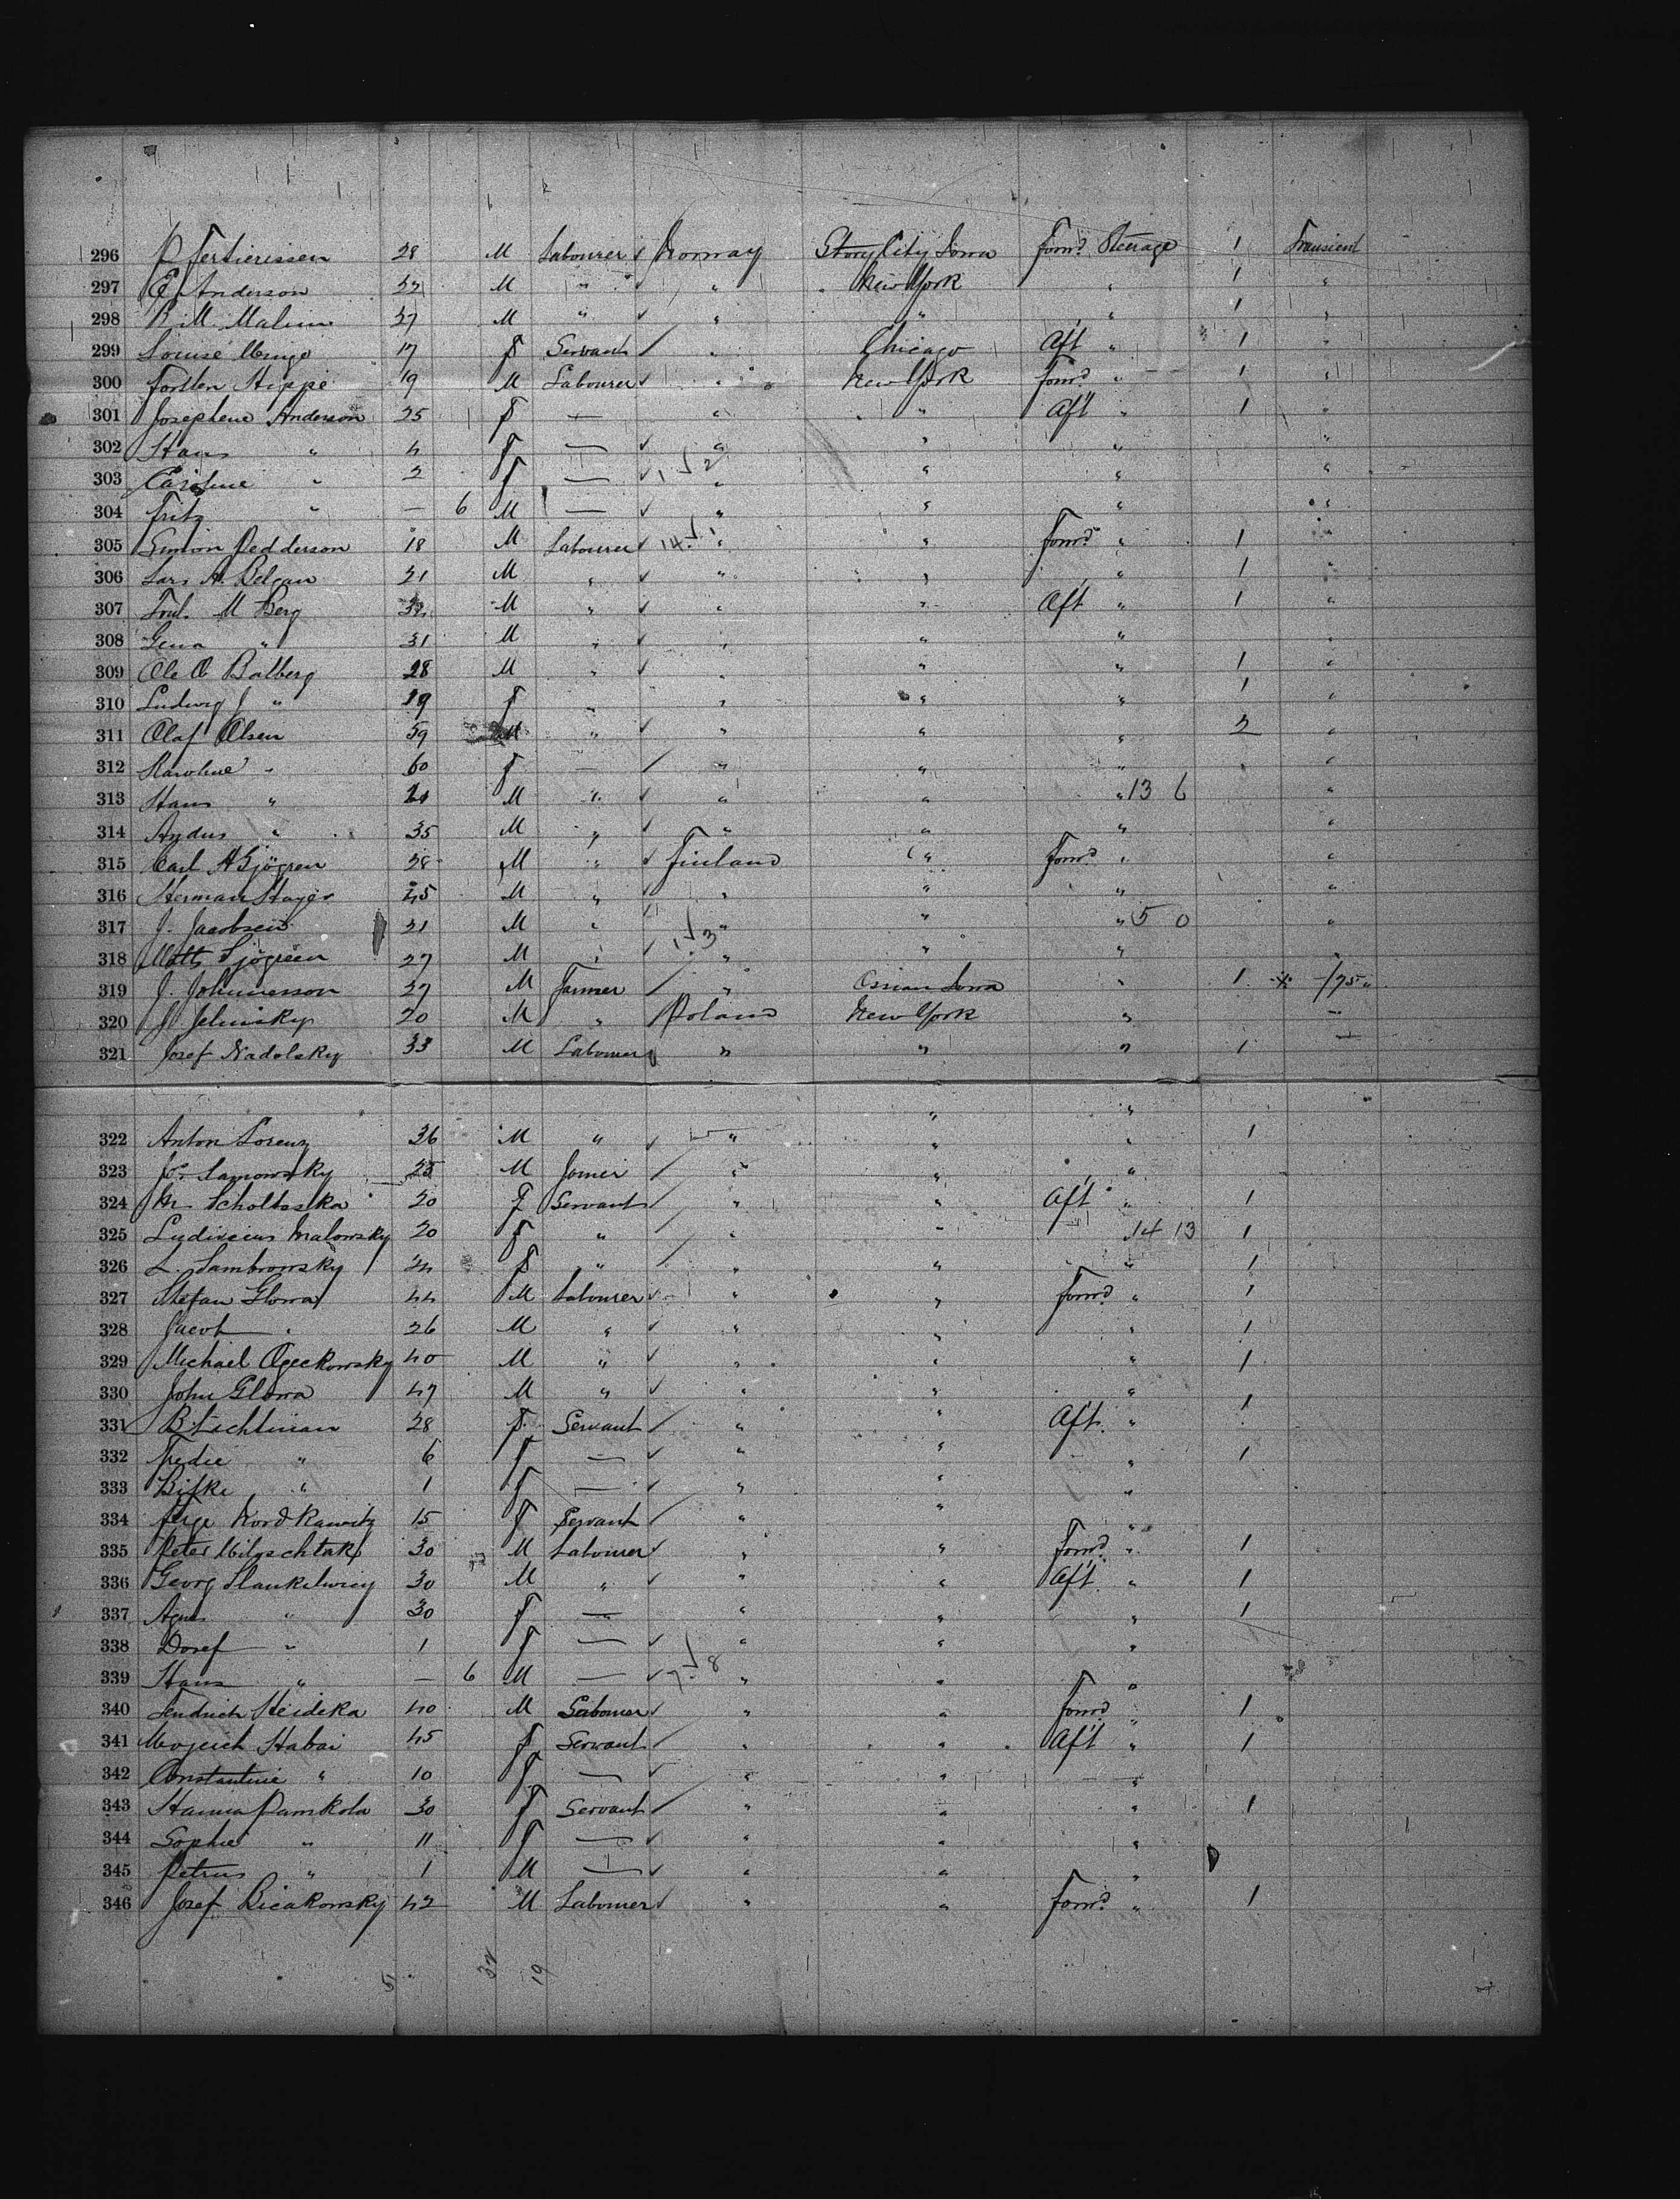 296 P Fertierissen 28 M Labourer Norway Story City Iowa Forwd Steerage 1 Transient
297 E Anderson M " " New York " 1 "
298 27 M " " " " 1 "
299 Louise 17 F Servant " Chicago Aft " 1 "
300 Torsten Hippe 19 M Labourer " New York Forwd " 1 "
301 Josephine Anderson 25 F — " " Aft " 1 "
302 Hans " 4 F — " " " "
303 Caroline " 2 F — " " " "
304 Fritz " — 6 M — " " " "
305 Simon Pedderson 18 M Labourer " " Forwd " 1 "
306 Lars A. Belgan 21 M " " " " 1 "
307 M Berg M " " " Aft " 1 "
308 Gena " 31 M " " " " "
309 Ole O Balberg 28 M " " " " 1 "
310 Ludwig J " 29 F " " " " 1 "
311 Olaf Olsen 59 M " " " " 2 "
312 Karoline " 60 F — " " " "
313 Hans " M " " " " 13 6 "
314 Andus " 35 M " " " " "
315 Carl A Sjögren 28 M " Finland " Forwd " "
316 Herman Hager 45 M " " " " "
317 J. Jacobsen 21 M " " " " 5 0 "
318 Matts Sjögreen 27 M " " " " "
319 J. Johannesson 27 M Farmer " Ossian Iowa " 1 175 "
320 J Jelinsky 20 M " Poland New York "
321 Josef Nadolsky 33 M Labourer " " " 1
" "
322 Anton Lorenz 36 M " " " " 1
323 Samowsky 25 M Joiner " " "
324 M. Scholtaska 20 F Servant " " Aft " 1
325 Malowsky 20 F " " " " 14 13 1
326 L. Sambrowsky 24 F " " " " 1
327 Stefan Glowa 44 M Labourer " " Forwd " 1
328 Jacob " 26 M " " " " 1
329 Michael Ogeckowsky 40 M " " " " 1
330 John Glowa 47 M " " " " 1
331 B. Lichtman 28 F Servant " " Aft "
332 Fredie " 6 F — " " " 1
333 Rifke " 1 F — " " "
334 Feige Kordkawitz 15 F Servant " " "
335 Peter 30 M Labourer " " Forwd " 1
336 Georg 30 M " " " Aft " 1
337 Agnes " 30 F — " " " 1
338 Josef " 1 F — " " "
339 Hans " — 6 M — " " "
340 Heideka 40 M Labourer " " Forwd " 1
341 Wojcich Habai 45 F Servant " " Aft " 1
342 Constantine " 10 F — " " "
343 Hanna Pamkola 30 F Servant " " " 1
344 Sophie " 11 F — " " "
345 Petrus " 1 M — " " "
346 Josef Bicakowsky 42 M Labourer " " Forwd " 1
51 32 19